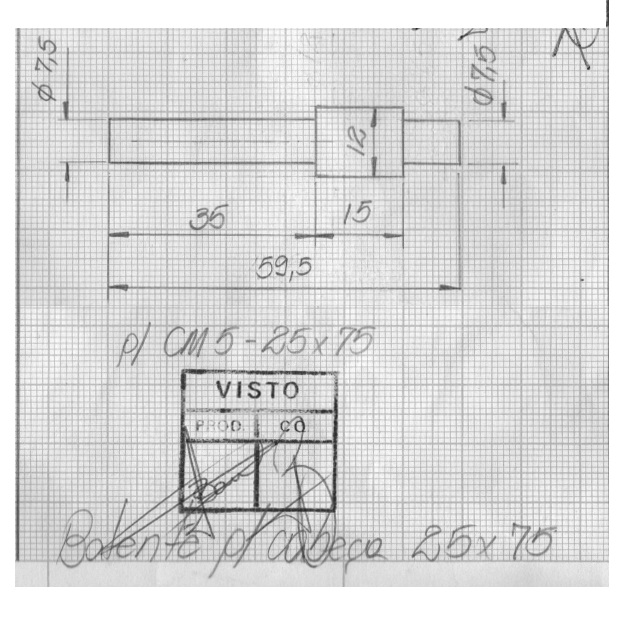 ø 7,5
ø 7,5
12
35
15
59,5
p/ CM 5 - 25 x 75
VISTO
PROD. CQ
Batente p/ cabeça 25 x 75